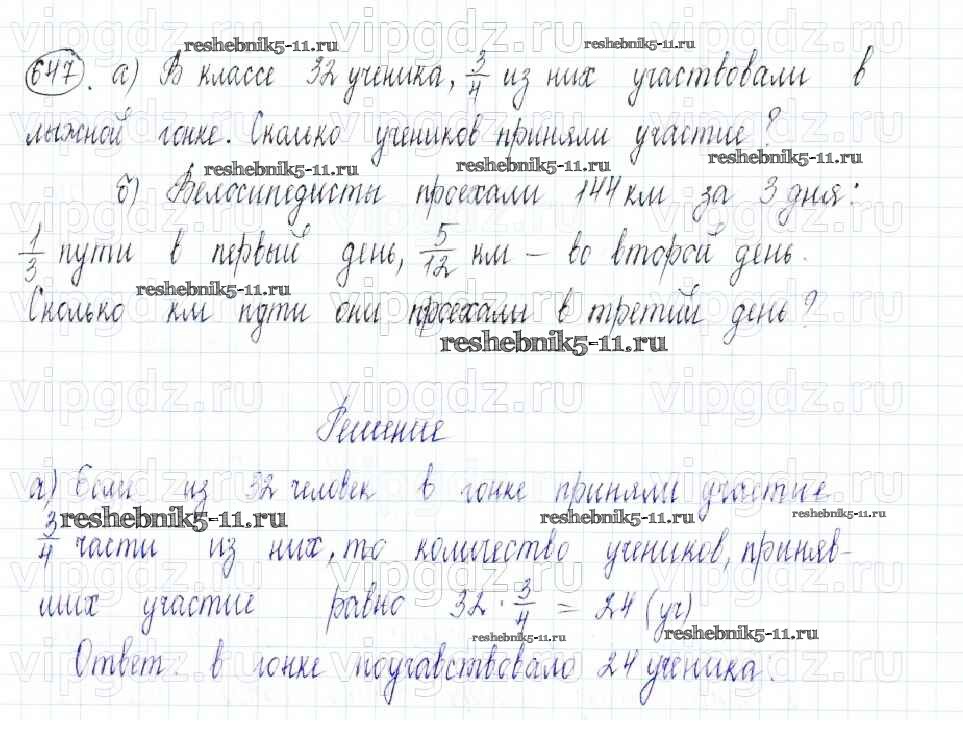 647. а) В классе 32 ученика, 3/4 из них участвовали в
лыжной гонке. Сколько учеников приняли участие?
б) Велосипедисты проехали 144 км за 3 дня:
1/3 пути в первый день, 5/12 км – во второй день.
Сколько км пути они проехали в третий день?
Решение
а) Если из 32 человек в гонке приняли участие
3/4 части из них, то количество учеников, приняв-
ших участие равно 32 · 3/4 = 24 (уч)
Ответ: в гонке поучавствовало 24 ученика.
reshebnik5-11.ru
vipgdz.ru